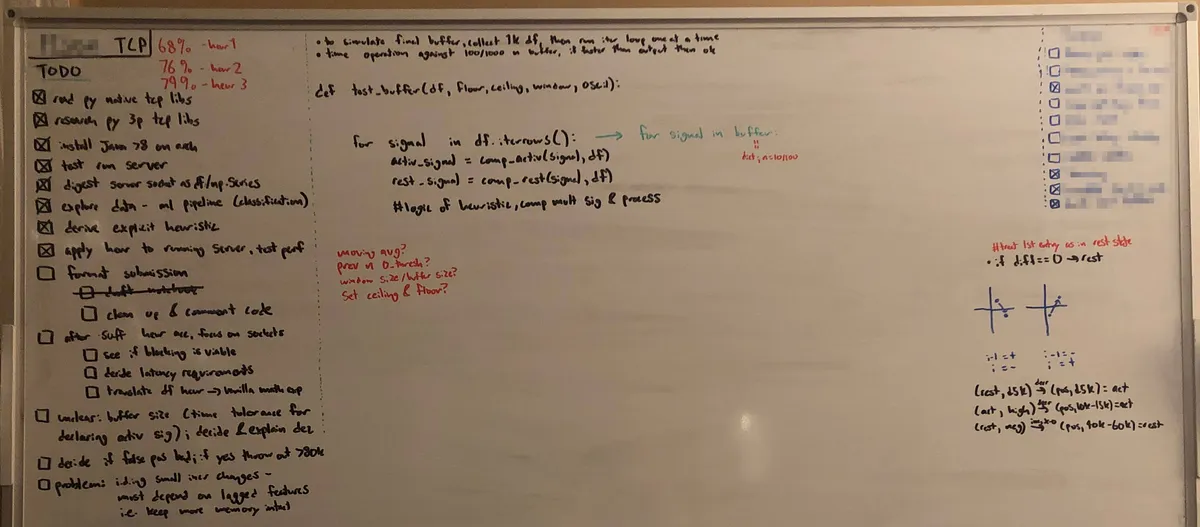 TCP
68% - heur 1
76% - heur 2
79% - heur 3
TODO
read py native tcp libs
research py 3p tcp libs
install Java >8 on arch
test run server
digest server socket as df/np.Series
explore data - ml pipeline (classification)
derive explicit heuristic
apply heur to running server, test perf
format submission
draft notebook
clean up & comment code
after suff heur acc, focus on sockets
see if blocking is viable
decide latency requirements
translate df heur → vanilla math exp
unclear: buffer size (time tolerance for
declaring activ sig); decide & explain dec
decide if false pos bad; if yes throw out >80k
problem: i.ding small incr changes -
must depend on lagged features
i.e. keep more memory intact
• to simulate final buffer, collect 1k df, then run iter loop one at a time
• time operation against 100/1000 n buffer, if faster than output then ok
def test_buffer(df, floor, ceiling, window, oscil):
for signal in df.iterrows(): → for signal in buffer:
dict, n=10/100
activ_signal = comp_activ(signal, df)
rest_signal = comp_rest(signal, df)
#logic of heuristic, comp mult sig & process
moving avg?
prev n 0_thresh?
window size/buffer size?
set ceiling & floor?
#treat 1st entry as in rest state
• if diff == 0 → rest
i-1 = + i-1 = -
i = - i = +
(rest, 25k) decr→ (pos, 25k) = act
(act, high) decr→ (pos, 10k-15k) = act
(rest, neg) → (pos, 40k-60k) = rest